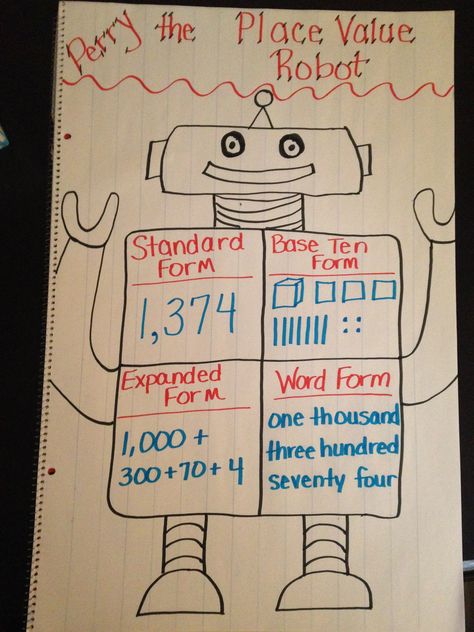 Perry the Place Value
Robot
Standard
Form
1,374
Base Ten
Form
Expanded
Form
1,000 +
300+70+4
Word Form
one thousand
three hundred
seventy four